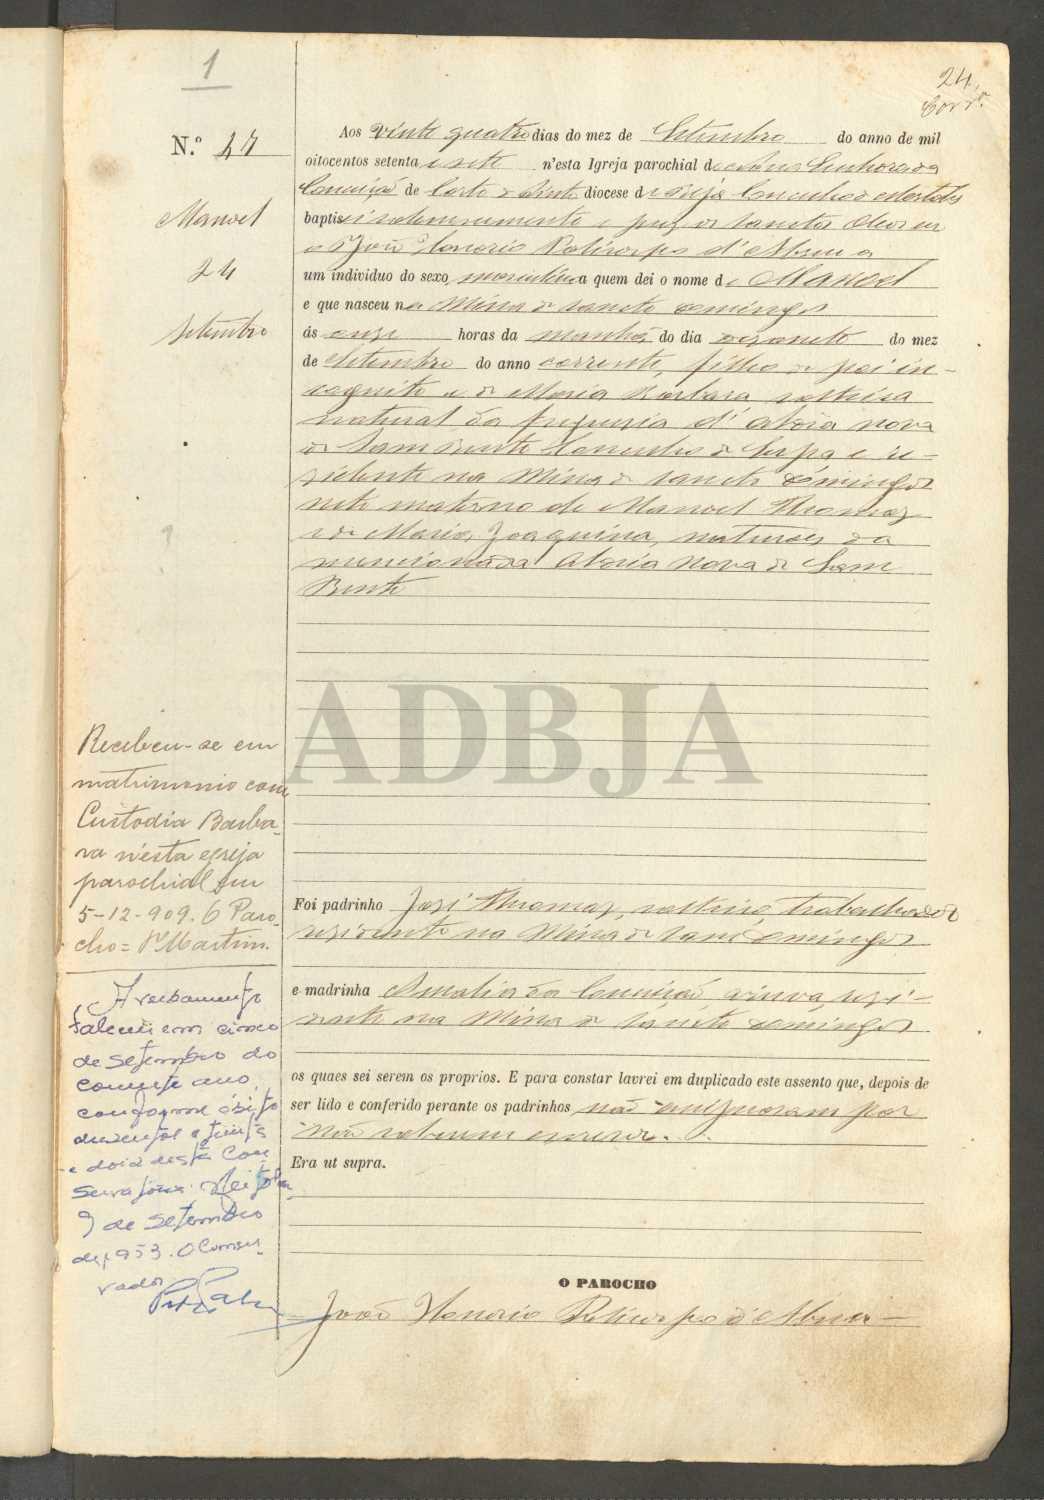 1
24
Corr.
N.º 47
Manoel
24
Setembro
Aos vinte quatro dias do mez de Setembro do anno de mil
oitocentos setenta e sete n'esta Igreja parochial de Nossa Senhora da
Conceição de Corte do Pinto diocese de Beja Concelho de Mertola
baptisei solemnemente e puz os sanctos oleos eu
João Honorio Policarpo d'Abreu a
um individuo do sexo masculino a quem dei o nome de Manoel
e que nasceu na Mina de Sancto Domingos
ás onze horas da manhã do dia dezasete do mez
de Setembro do anno corrente, filho de pai in-
cognito e de Maria Barbara solteira
natural da freguesia d'Aldeia nova
de Sam Bento Concelho de Serpa e re-
sidente na Mina de Sancto Domingos
neto materno de Manoel Thomaz
e de Maria Joaquina, naturaes da
mencionada Aldeia Nova de Sam
Bento
ADBJA
Recebeu-se em
matrimonio com
Custodia Barba-
ra n'esta egreja
parochial em
5-12-909. O Paro-
cho = Pe. Martins.
Foi padrinho José Thomaz, solteiro, trabalhador
residente na Mina de Sam Domingos
e madrinha Amalia da Conceição, viuva, resi-
dente na Mina de Sancto Domingos
os quaes sei serem os proprios. E para constar lavrei em duplicado este assento que, depois de
ser lido e conferido perante os padrinhos não assignaram por
não saberem escrever.
Era ut supra.
Averbamento
Faleceu em cinco
de Setembro do
corrente ano,
conforme óbito
duzentos e trinta
e dois desta Con
servatória. Mértola,
9 de Setembro
de 1953. O Conser-
vador
O PAROCHO
João Honorio Policarpo d'Abreu